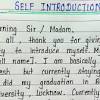 SELF INTRODUCTION
rning Sir / Madam,
all, thank you for giving
ty to introduce myself. M
ll name]. I am basically
esh but currently stayin
d my graduation in
versity, Lucknow. Currently